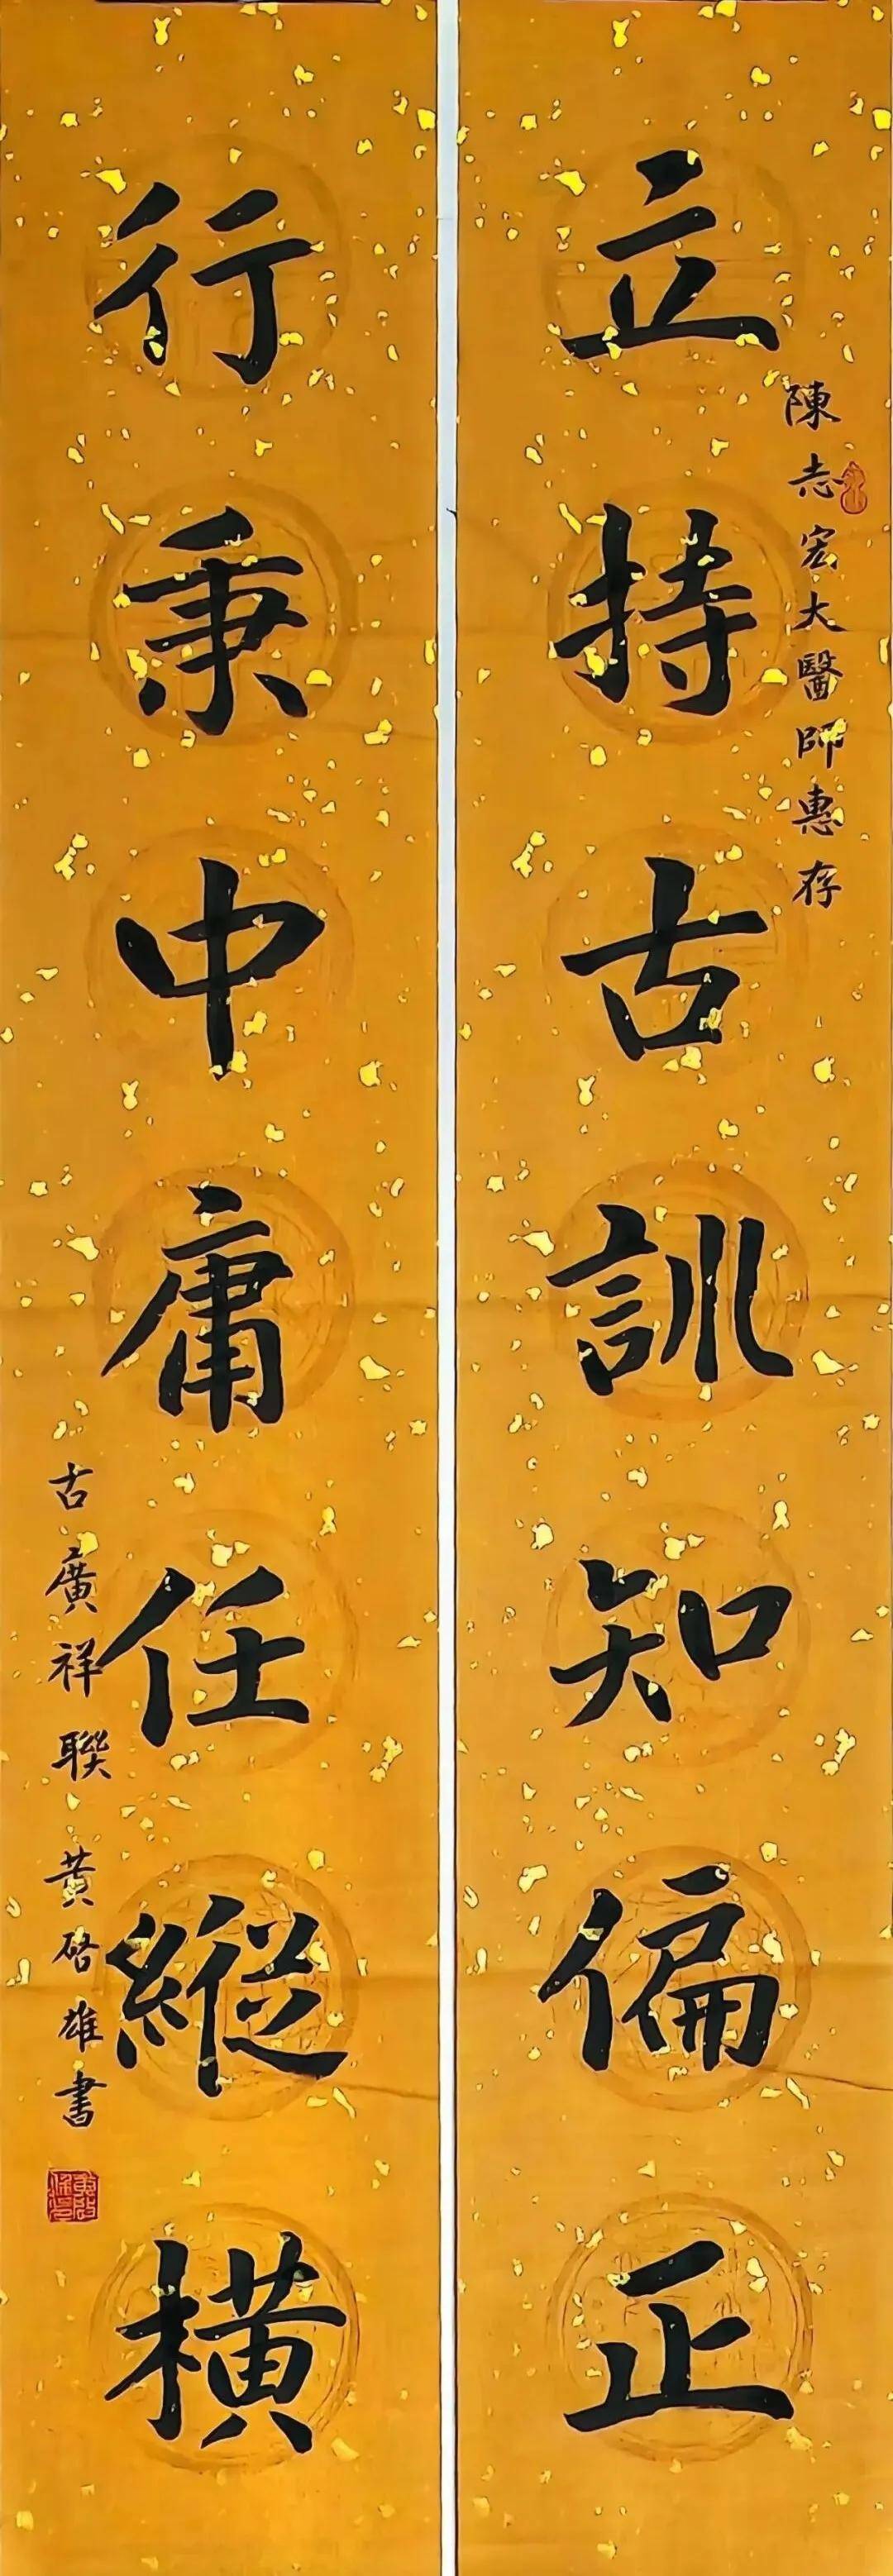 陳志宏大醫師惠存
立持古訓知偏正
行秉中庸任縱橫
古廣祥聯 黃啓雄書